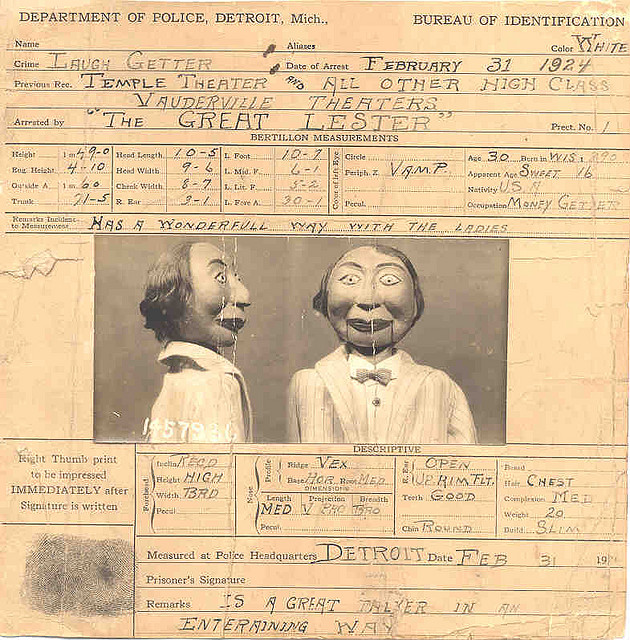 DEPARTMENT OF POLICE, DETROIT, Mich., BUREAU OF IDENTIFICATION
Name Aliases Color WHITE
Crime LAUGH GETTER Date of Arrest FEBRUARY 31 1924
Previous Rec. TEMPLE THEATER AND ALL OTHER HIGH CLASS
VAUDERVILLE THEATERS
Arrested by "THE GREAT LESTER" Prect. No. 1
BERTILLON MEASUREMENTS
Height 1 m 49-0 Head Length 10-5 L. Foot 10-7 Circle Age 30 Born in WIS. 1890
Eng. Height 4-10 Head Width 9-6 L. Mid. F. 6-1 Periph. Z VAMP. Apparent Age SWEET 16
Outside A. 1 m 60 Cheek Width 8-7 L. Lit. F. 5-2 Nativity USA
Trunk 71-5 R. Ear 3-1 L. Fore A. 30-1 Pecul. Occupation MONEY GETTER
Color of Left Eye
Remarks Incident to Measurement HAS A WONDERFULL WAY WITH THE LADIES
1457986
DESCRIPTIVE
Right Thumb print
to be impressed
IMMEDIATELY after
Signature is written
Forehead
Inclin. RECD
Height HIGH
Width BRD
Pecul.
Nose
Profile
Ridge VEX
Base HOR Root MED
DIMENSIONS
Length Projection Breadth
MED V PRO BRO
Pecul.
R. Ear OPEN
UP RIM FLT.
Teeth GOOD
Chin ROUND
Beard
Hair CHEST
Complexion MED
Weight 20
Build SLIM
Measured at Police Headquarters DETROIT Date FEB 31 19
Prisoner's Signature
Remarks IS A GREAT TALKER IN AN
ENTERAINING WAY